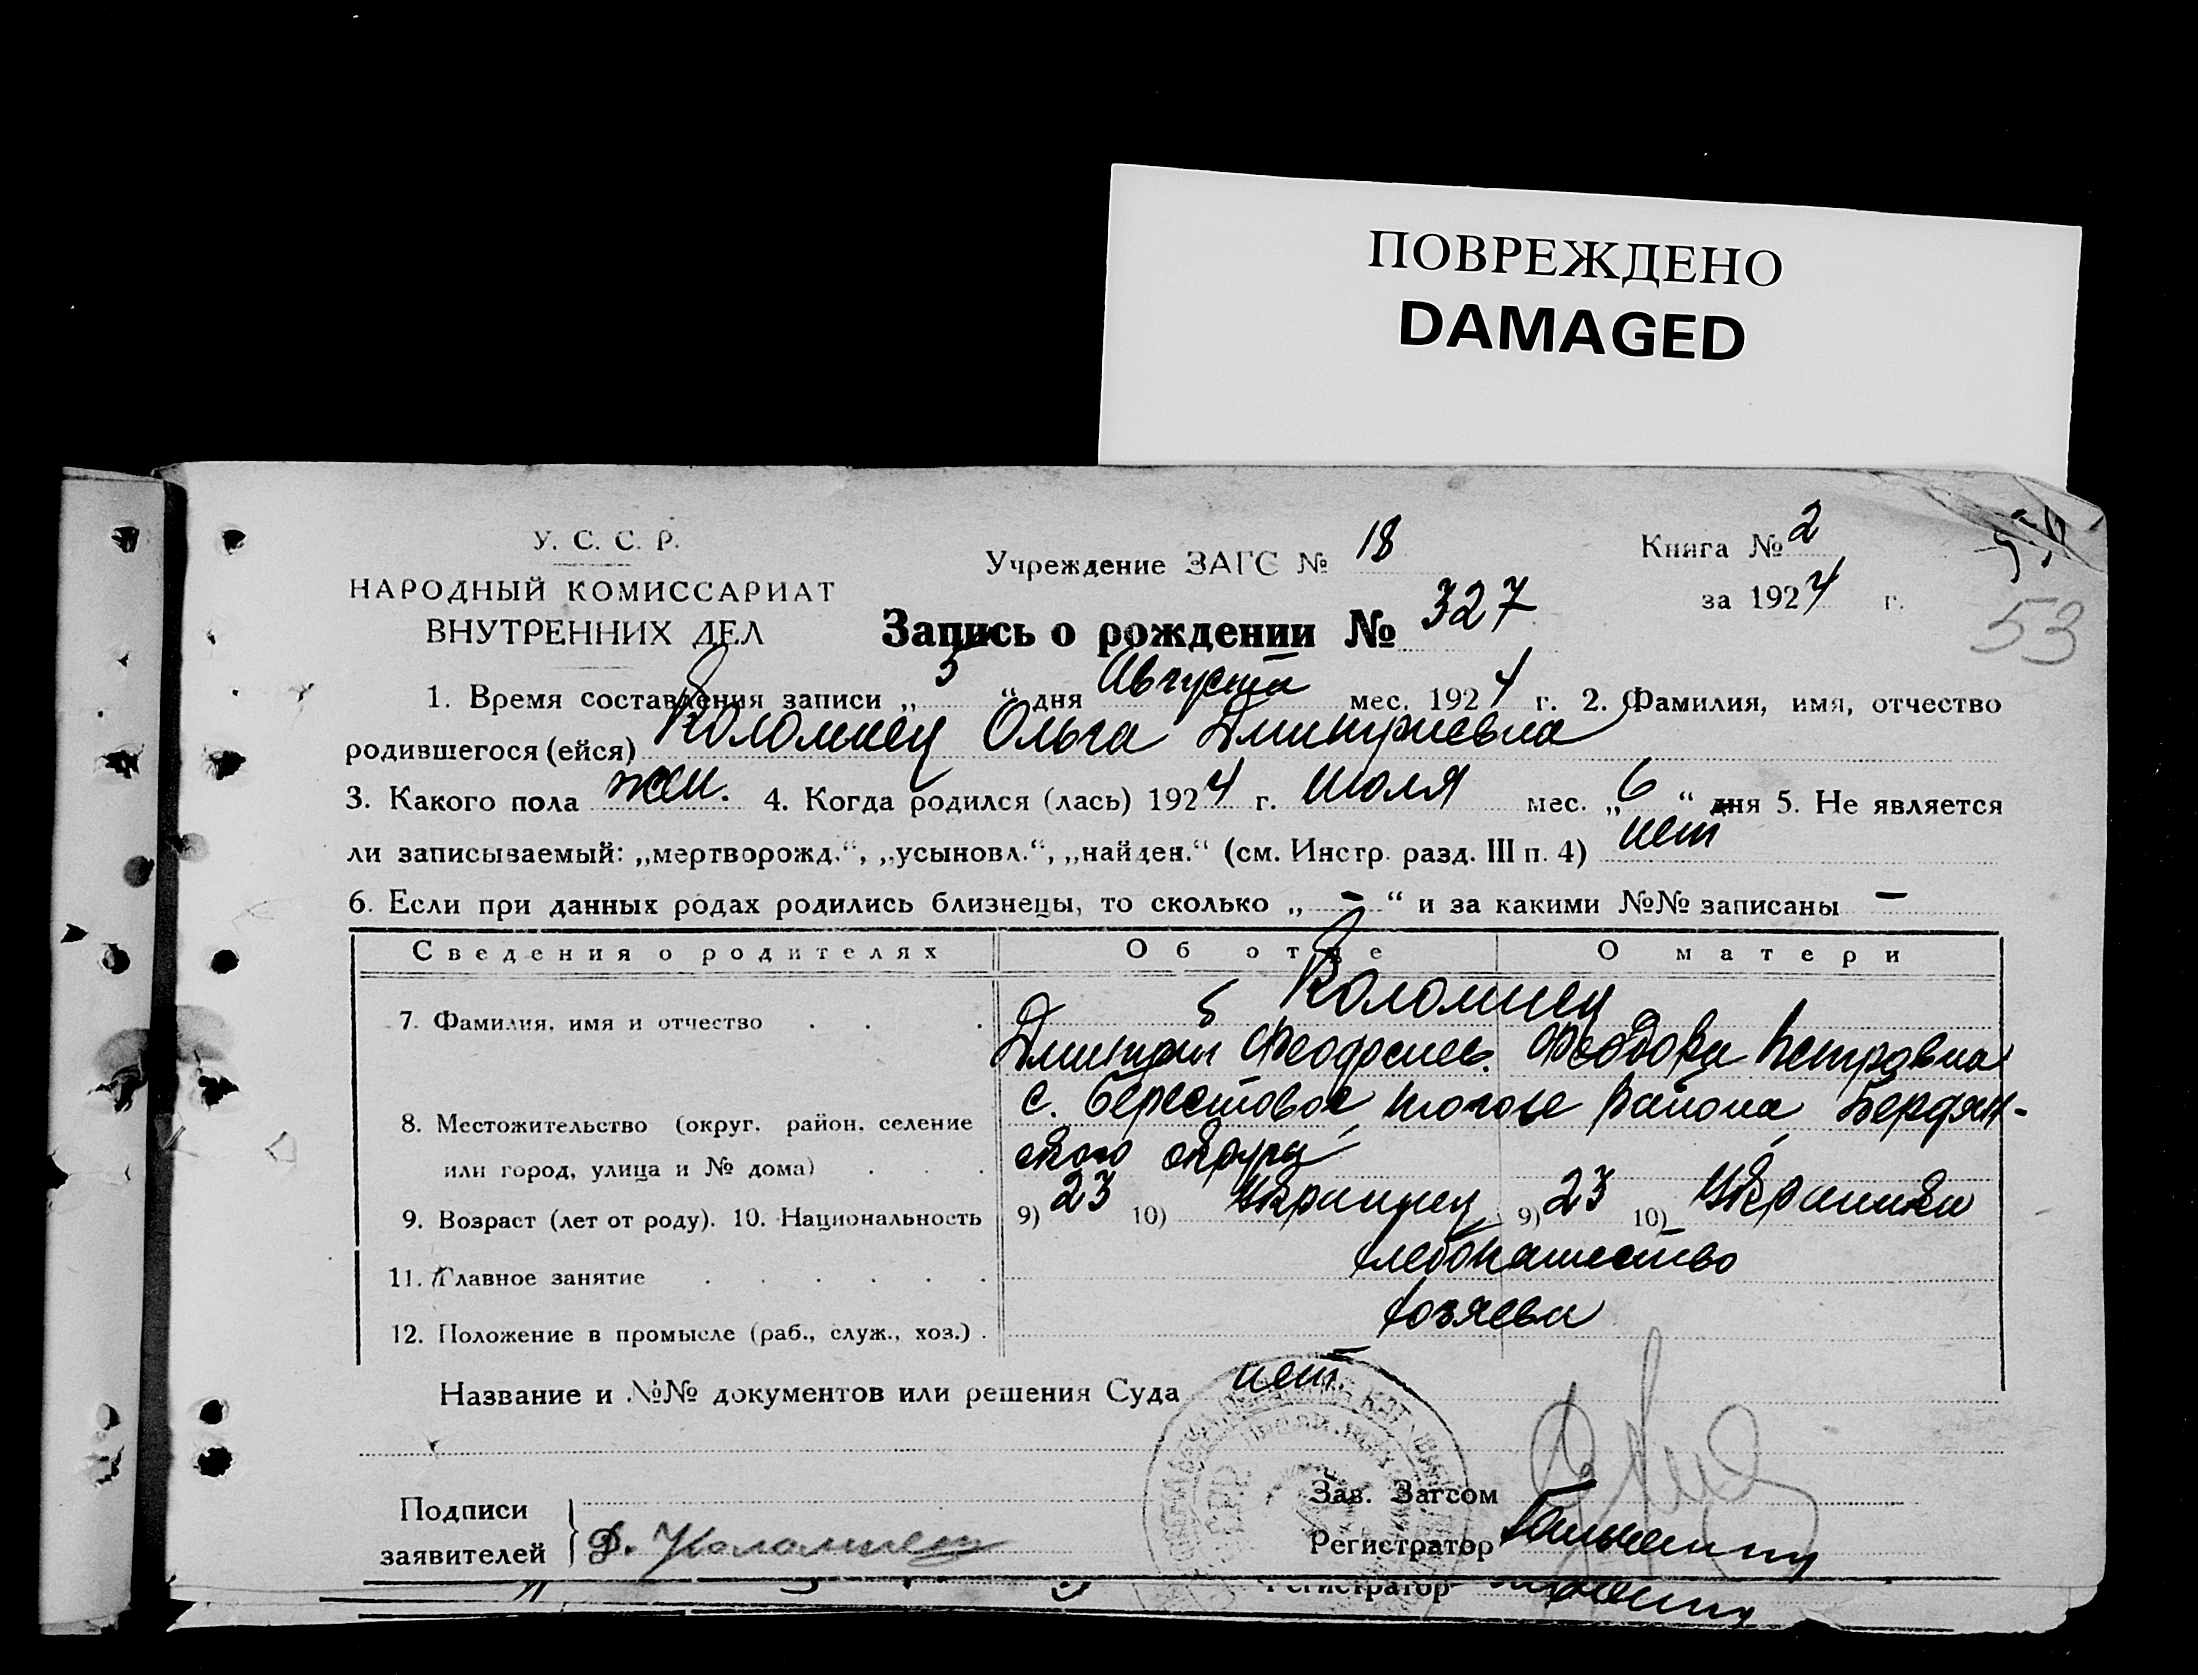 ПОВРЕЖДЕНО
DAMAGED
У. С. С. Р.
НАРОДНЫЙ КОМИССАРИАТ
ВНУТРЕННИХ ДЕЛ
Учреждение ЗАГС № 18
Книга № 2
за 1924 г.
53
Запись о рождении № 327
1. Время составления записи „5“ дня Августа мес. 1924 г. 2. Фамилия, имя, отчество
родившегося (ейся) Коломиец Ольга Дмитриевна
3. Какого пола жен. 4. Когда родился (лась) 1924 г. июля мес. „6“ дня 5. Не является
ли записываемый: „мертворожд.“, „усыновл.“, „найден.“ (см. Инстр. разд. III п. 4) нет
6. Если при данных родах родились близнецы, то сколько „-“ и за какими №№ записаны -
Сведения о родителях Об отце О матери
7. Фамилия, имя и отчество Коломиец
Дмитрий Феодосиев. Феодора Петровна
с. Берестовое, района Бердян-
8. Местожительство (округ, район, селение
ского округа
или город, улица и № дома)
9. Возраст (лет от роду). 10. Национальность 9) 23 10) Украинец 9) 23 10) Украинка
11. Главное занятие хлебопашество
12. Положение в промысле (раб., служ., хоз.) хозяева
Название и №№ документов или решения Суда нет
Зав. Загсом
Подписи
заявителей } Д. Коломиец
Регистратор
Регистратор